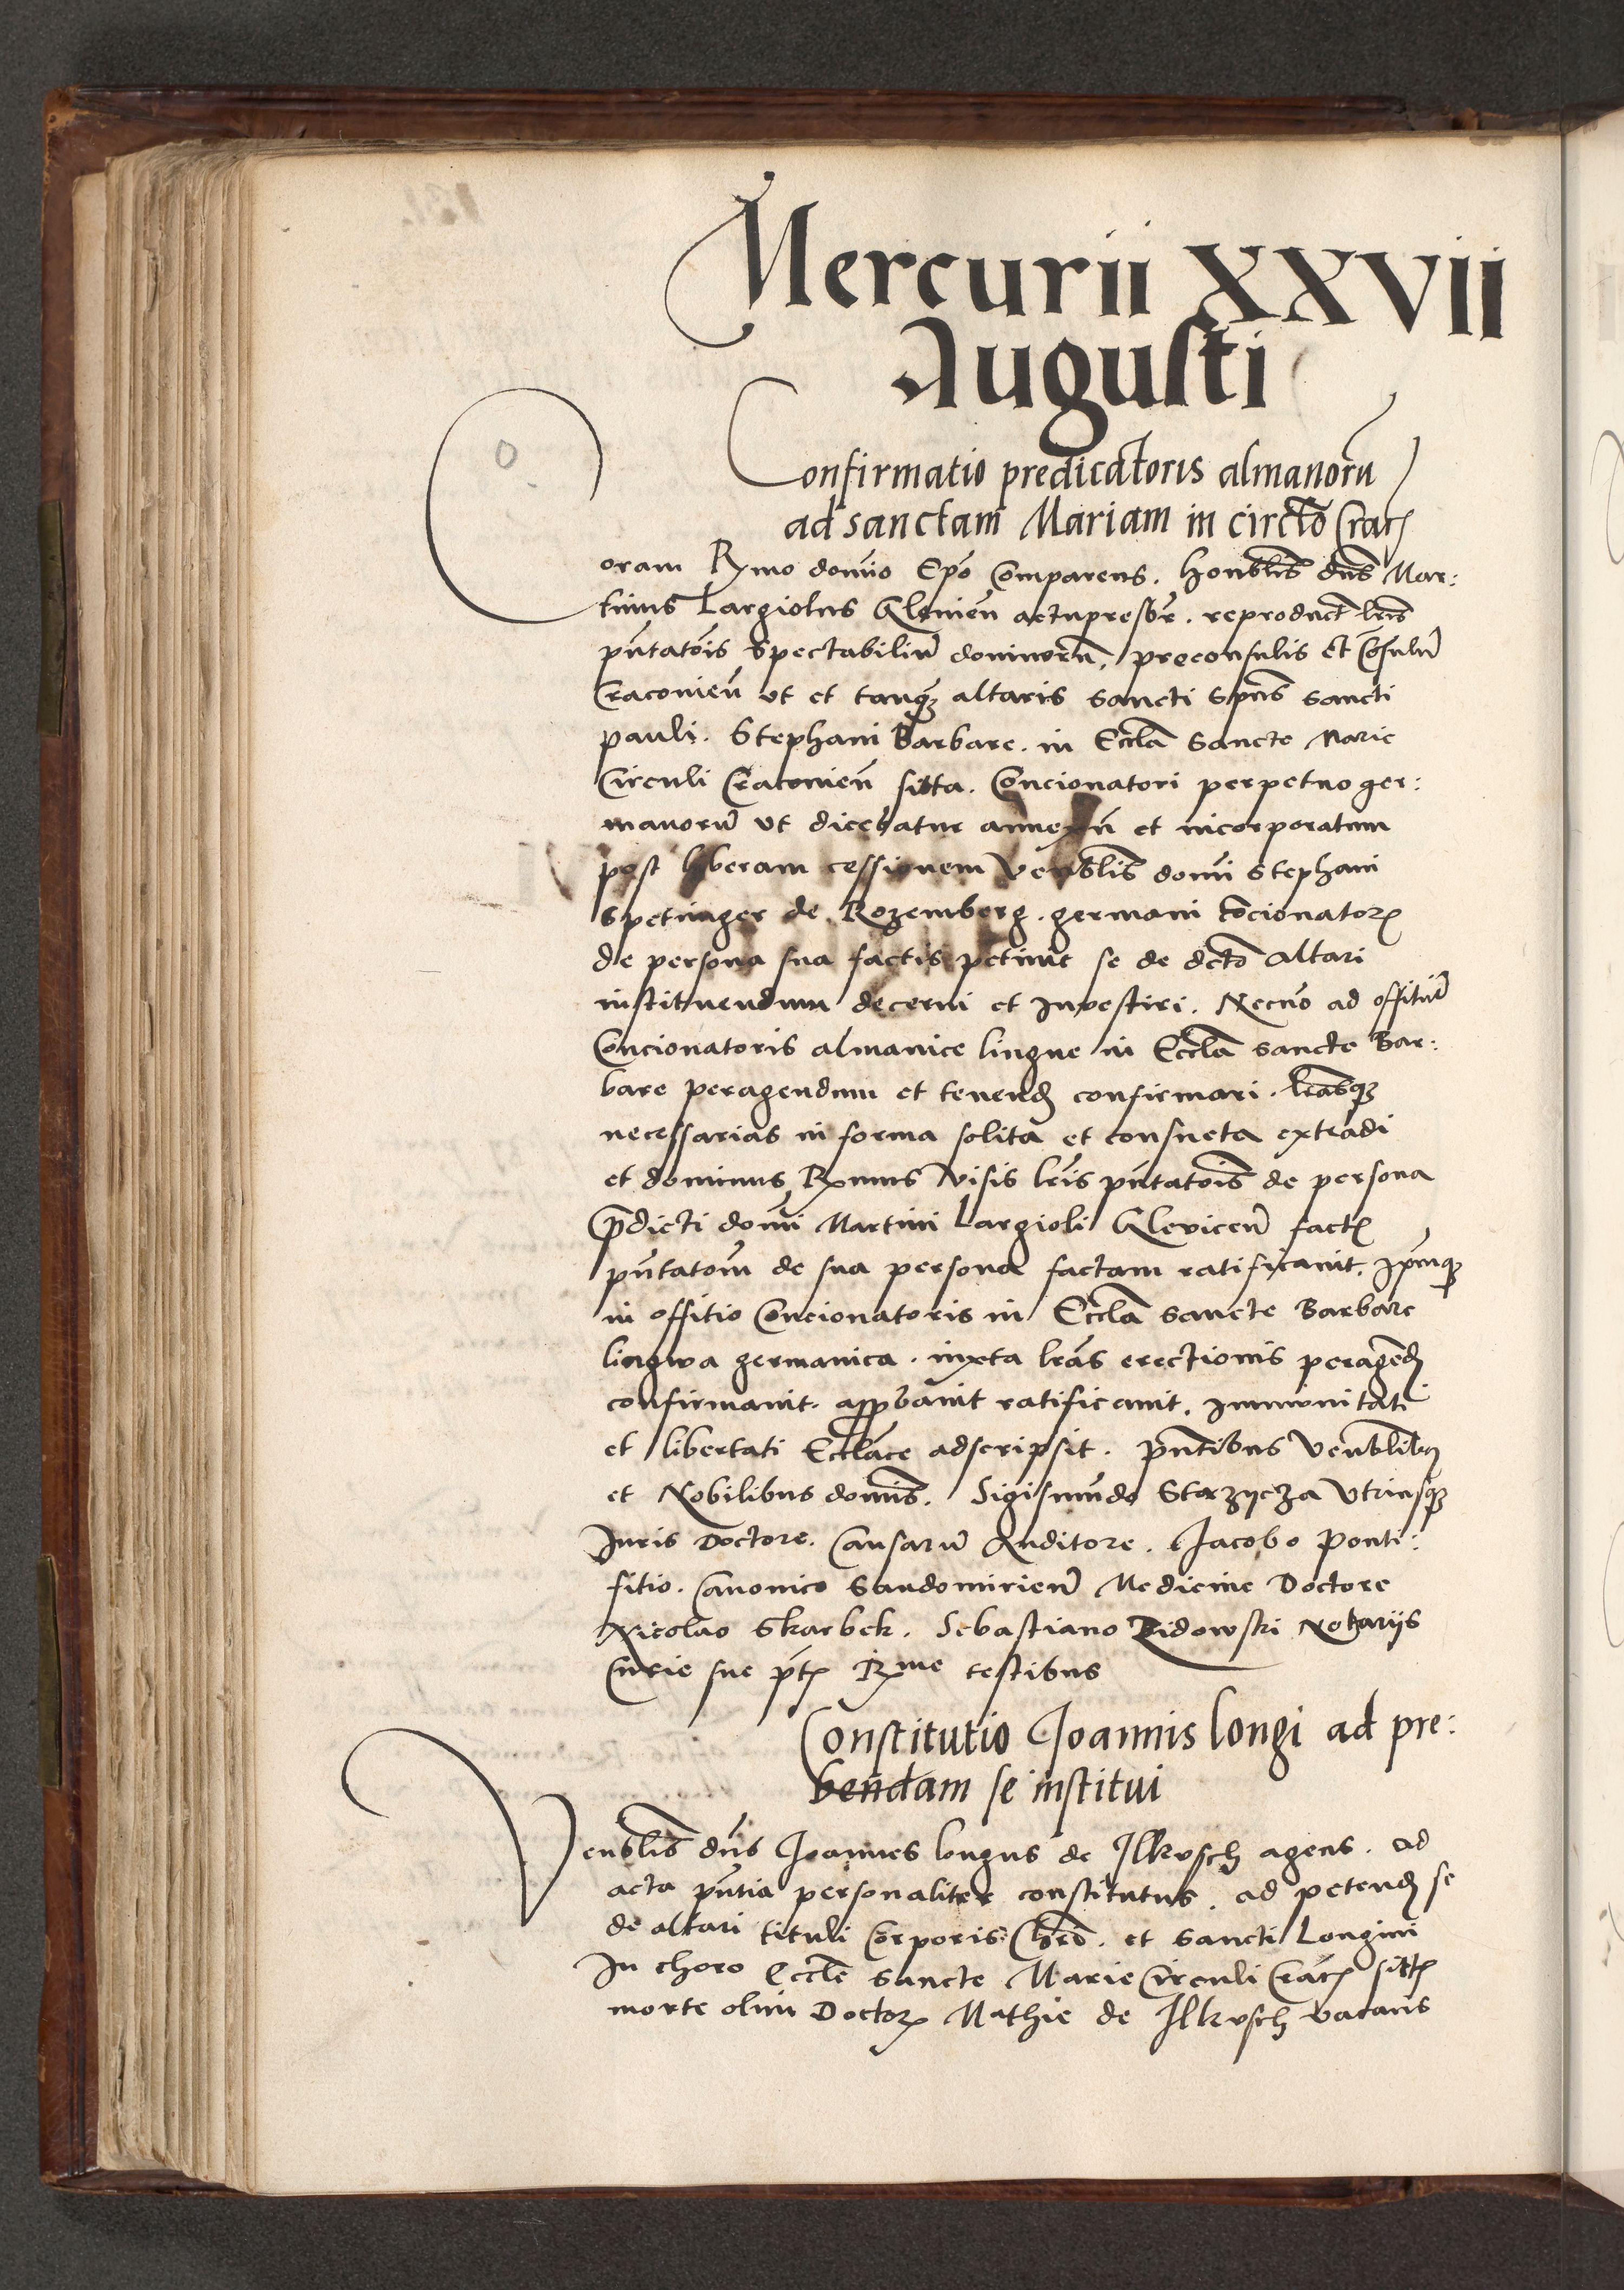 Mercurii XXVII
Augusti
Confirmatio predicatoris almanorū
ad sanctam Mariam in circto Crac̄
Coram Rmo domīo Epō Comparens. Honblis dns̄ Mar:
tinus Largiolus actupresbr̄. reproduct lrīs
pn̄tatōis Spectabiliū dominorū, preconsulis et Cōsulū
Cracovien̄ ut et tanq altaris sancti Sp̄us sancti
pauli. Stephani Barbare. in Eccla Sancte Marie
Circuli Cracovien̄ sitta. Concionatori perpetuo ger:
manorū ut dicebatur annexū et incorporatum
post liberam cessionem Venblis domī Stephani
Spetinger de Rozemberg. germani cōcionator
de persona sua factis petivit se de dcto altari
instituendum decerni et Investiri. Necnō ad offitiū
Concionatoris almanice lingue in Eccla Sancte Bar:
bare peragendum et tenend confirmari. lrasq
necessarias in forma solita et consueta extradi
et dominus Rmus Visis lrīs pn̄tatōis de persona
p̄dicti domī Martini Largioli factȩ
pn̄tatōm de sua persona factam ratificavit. Ipmq
in offitio Concionatoris in Eccla Sancte Barbare
lingwa germanica. iuxta lrās erectionis peragēd
confirmavit. approbavit ratificavit. Immunitati
et libertati Ecclace adscripsit. pn̄tibus Venblibq
et Nobilibus domīs. Sigismūdo Starzycza Utriusq
Iuris Doctore. Causarū Auditore. Jacobo Ponti:
fitio. Canonico Sandomirien̄ Medicine Doctore
Nicolao Skarbek. Sebastiano Zidowski Notariis
Curie sue pt Rme testibus
Constitutio Joannis longi ad pre:
bendam se institui
Venblis dns̄ Joannes longus de Ilkusch agens. ad
acta pn̄tia personaliter constitutus. ad petend se
de altari tituli Corporis Chri. et Sancti Longini
In choro Eccle Sancte Marie Circuli Crac̄ sitt
morte olim Doctor Mathie de Ilkusch vacans